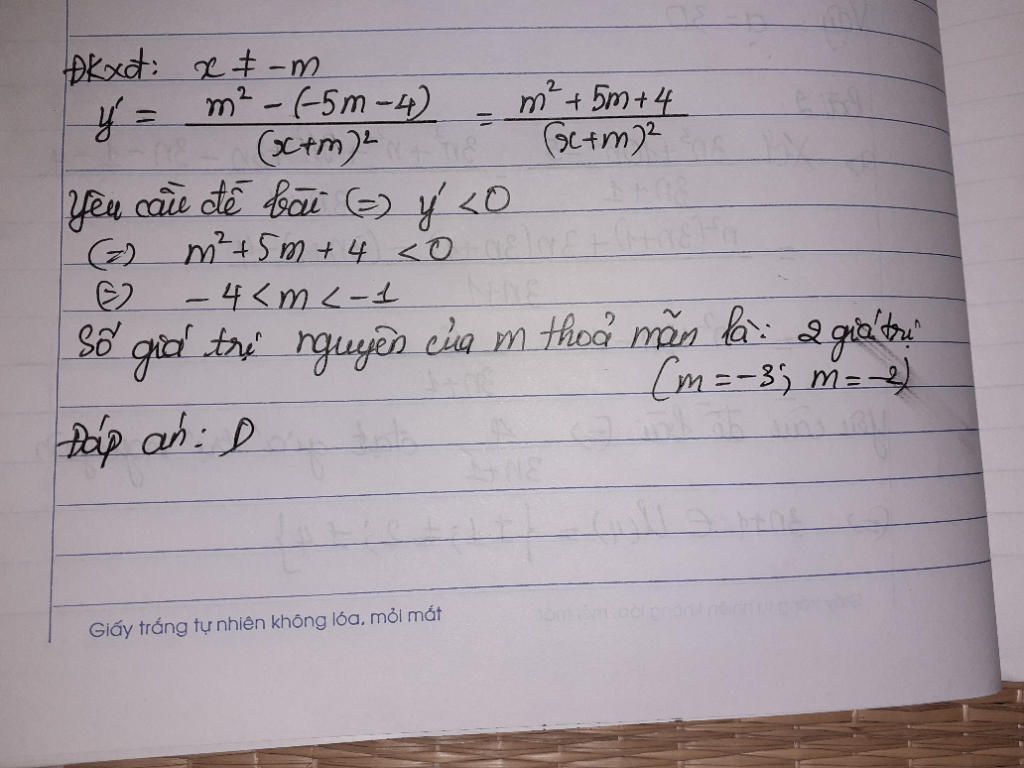 ĐKxđ: x ≠ -m
y' = m² - (-5m - 4) / (x+m)² = m² + 5m + 4 / (x+m)²
Yêu cầu đề bài (=) y' < 0
(=) m² + 5m + 4 < 0
(=) - 4 < m < - 1
Số giá trị nguyên của m thoả mãn là: 2 giá trị
(m = -3; m = -2)
Đáp án: D
Giấy trắng tự nhiên không lóa, mỏi mắt